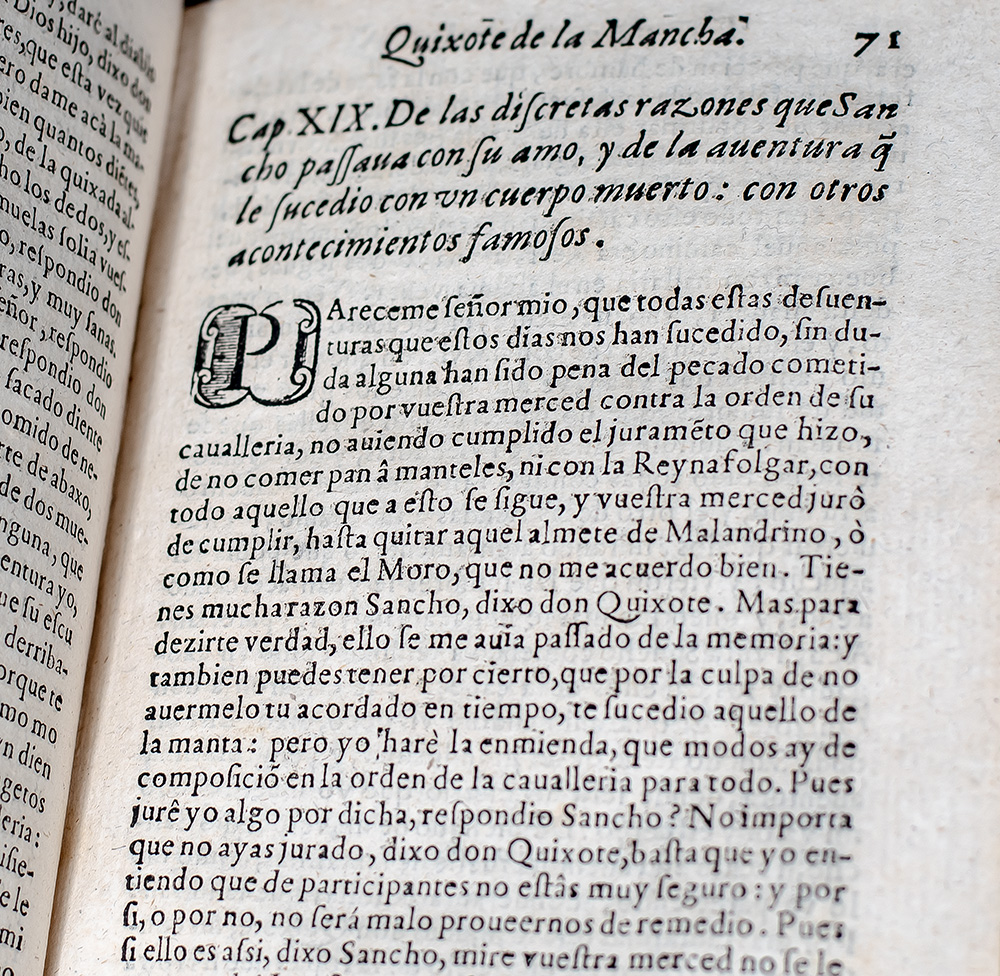 y, darè al diablo
Dios hijo, dixo don
res, que esta vez quie
ero dame acà la ma-
bien quantos diẽtes,
o, de la quixada al-
ho los dedos, y es-
muelas solia vues-
o, respondio don
ras, y muy sanas.
eñor, respondio
respondio don
sacado diente
omido de ne-
rte de abaxo,
de dos mue-
nguna, que
entura yo,
ue su escu
derriba-
orque te
mo mo
n dien
getos
leria:
isie-
e le
mi
Quixote de la Mancha. 71
Cap. XIX. De las discretas razones que San
cho passaua con su amo, y de la auentura q̃
le sucedio con vn cuerpo muerto: con otros
acontecimientos famosos.
PAreceme señor mio, que todas estas desuen-
turas que estos dias nos han sucedido, sin du-
da alguna han sido pena del pecado cometi-
do por vuestra merced contra la orden de su
caualleria, no auiendo cumplido el juramẽto que hizo,
de no comer pan â manteles, ni con la Reyna folgar, con
todo aquello que a esto se sigue, y vuestra merced jurô
de cumplir, hasta quitar aquel almete de Malandrino, ò
como se llama el Moro, que no me acuerdo bien. Tie-
nes mucha razon Sancho, dixo don Quixote. Mas para
dezirte verdad, ello se me auîa passado de la memoria: y
tambien puedes tener por cierto, que por la culpa de no
auermelo tu acordado en tiempo, te sucedio aquello de
la manta: pero yo harè la enmienda, que modos ay de
composiciõ en la orden de la caualleria para todo. Pues
jurê yo algo por dicha, respondio Sancho? No importa
que no ayas jurado, dixo don Quixote, basta que yo en-
tiendo que de participantes no estâs muy seguro: y por
si, o por no, no será malo proueernos de remedio. Pues
si ello es assi, dixo Sancho, mire vuestra merced no se le